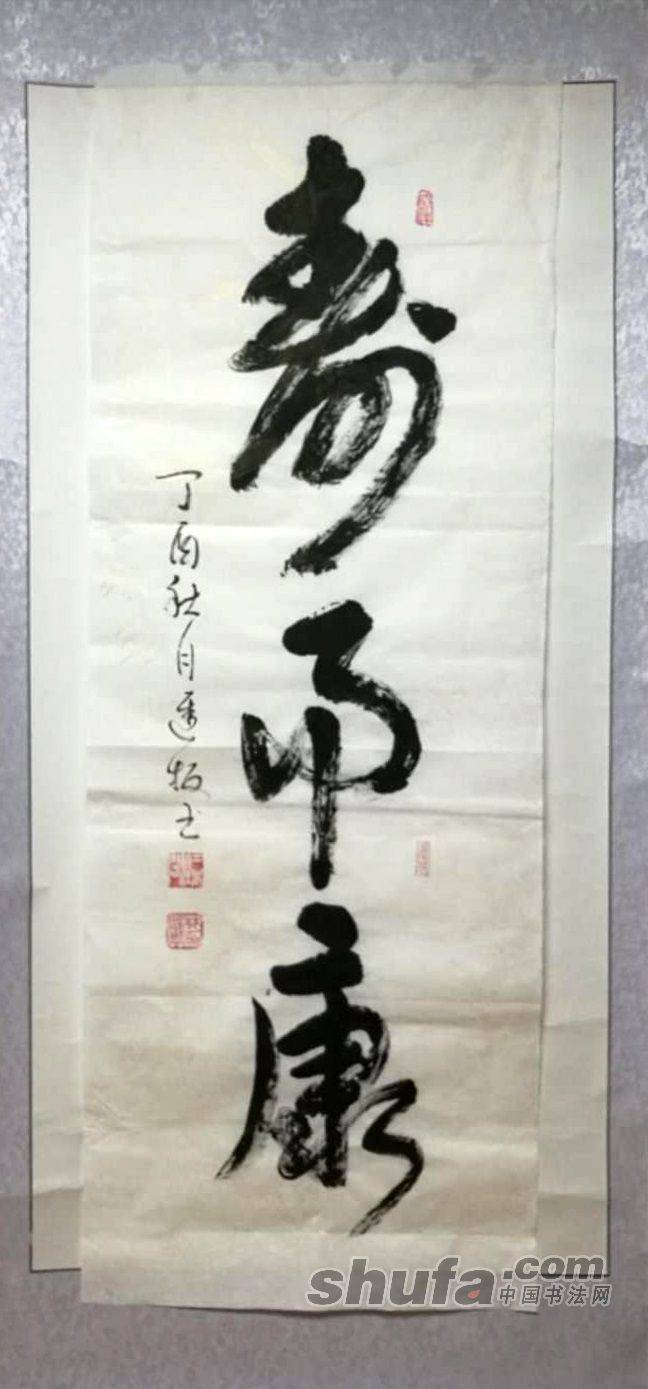 寿而康
丁酉秋月 书
shufa.com
中国书法网